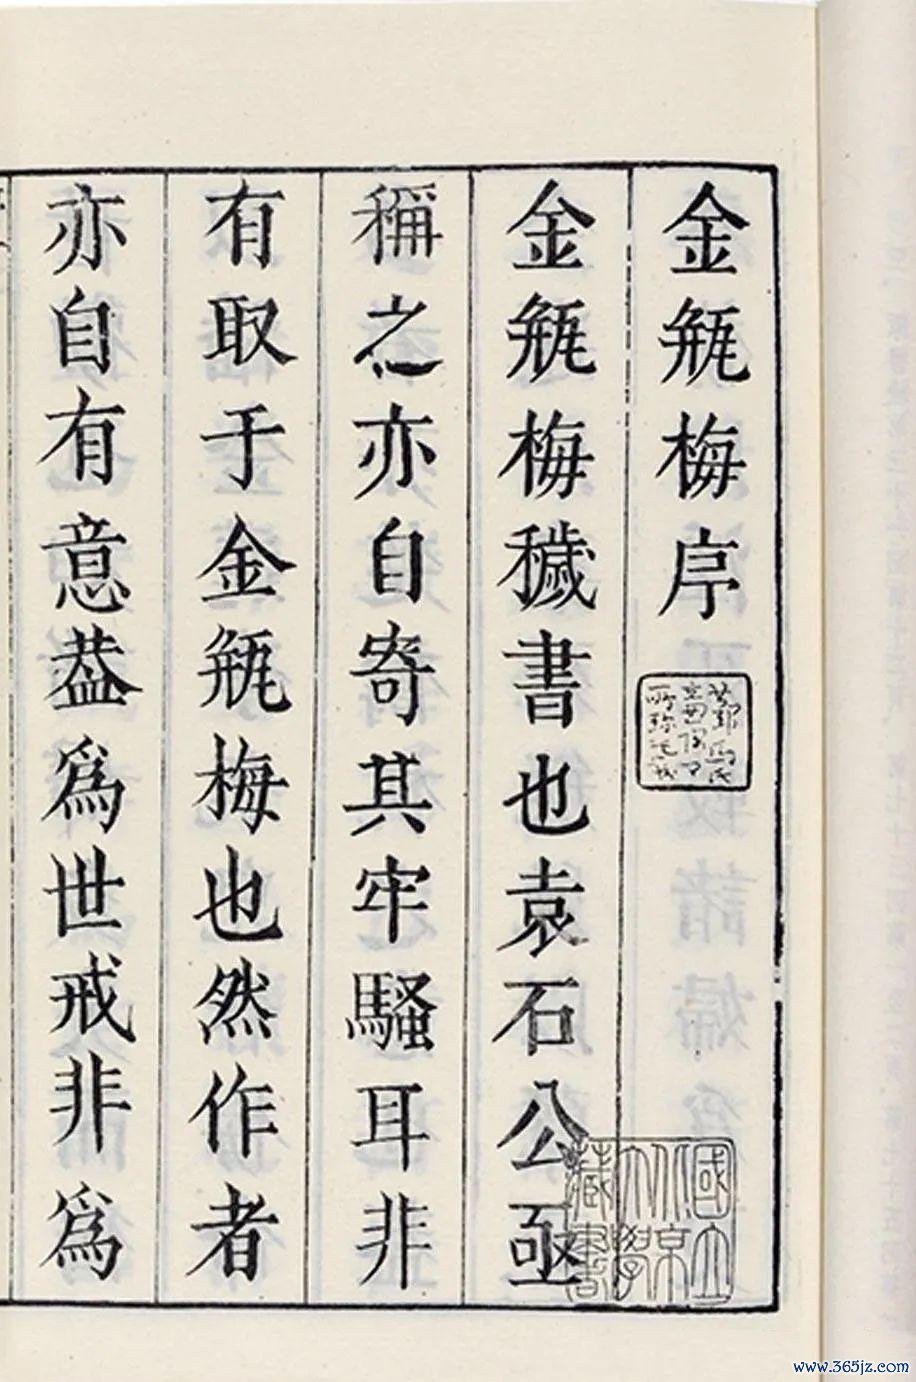 金瓶梅序
金瓶梅穢書也袁石公亟
稱之亦自寄其牢騷耳非
有取于金瓶梅也然作者
亦自有意葢爲世戒非爲
國立
北京
大學
藏書
www.365jz.com